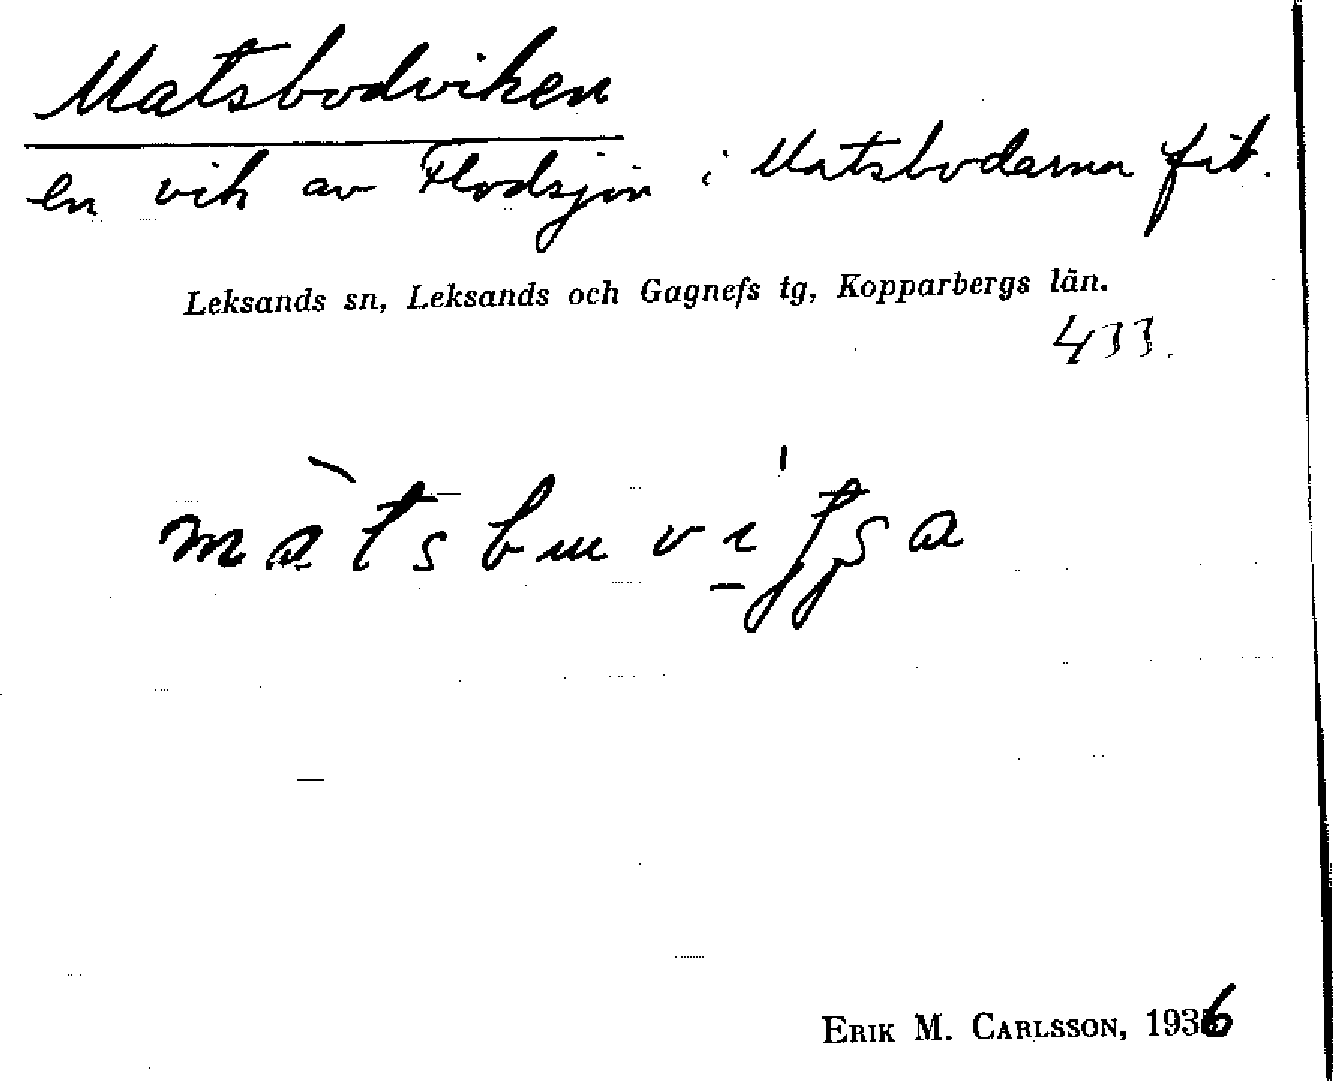 Matsbodviken
en vik av Flodsjön i Matsbodarna fäb.
Leksands sn, Leksands och Gagnefs tg, Kopparbergs län.
433.
ERIK M. CARLSSON, 1936